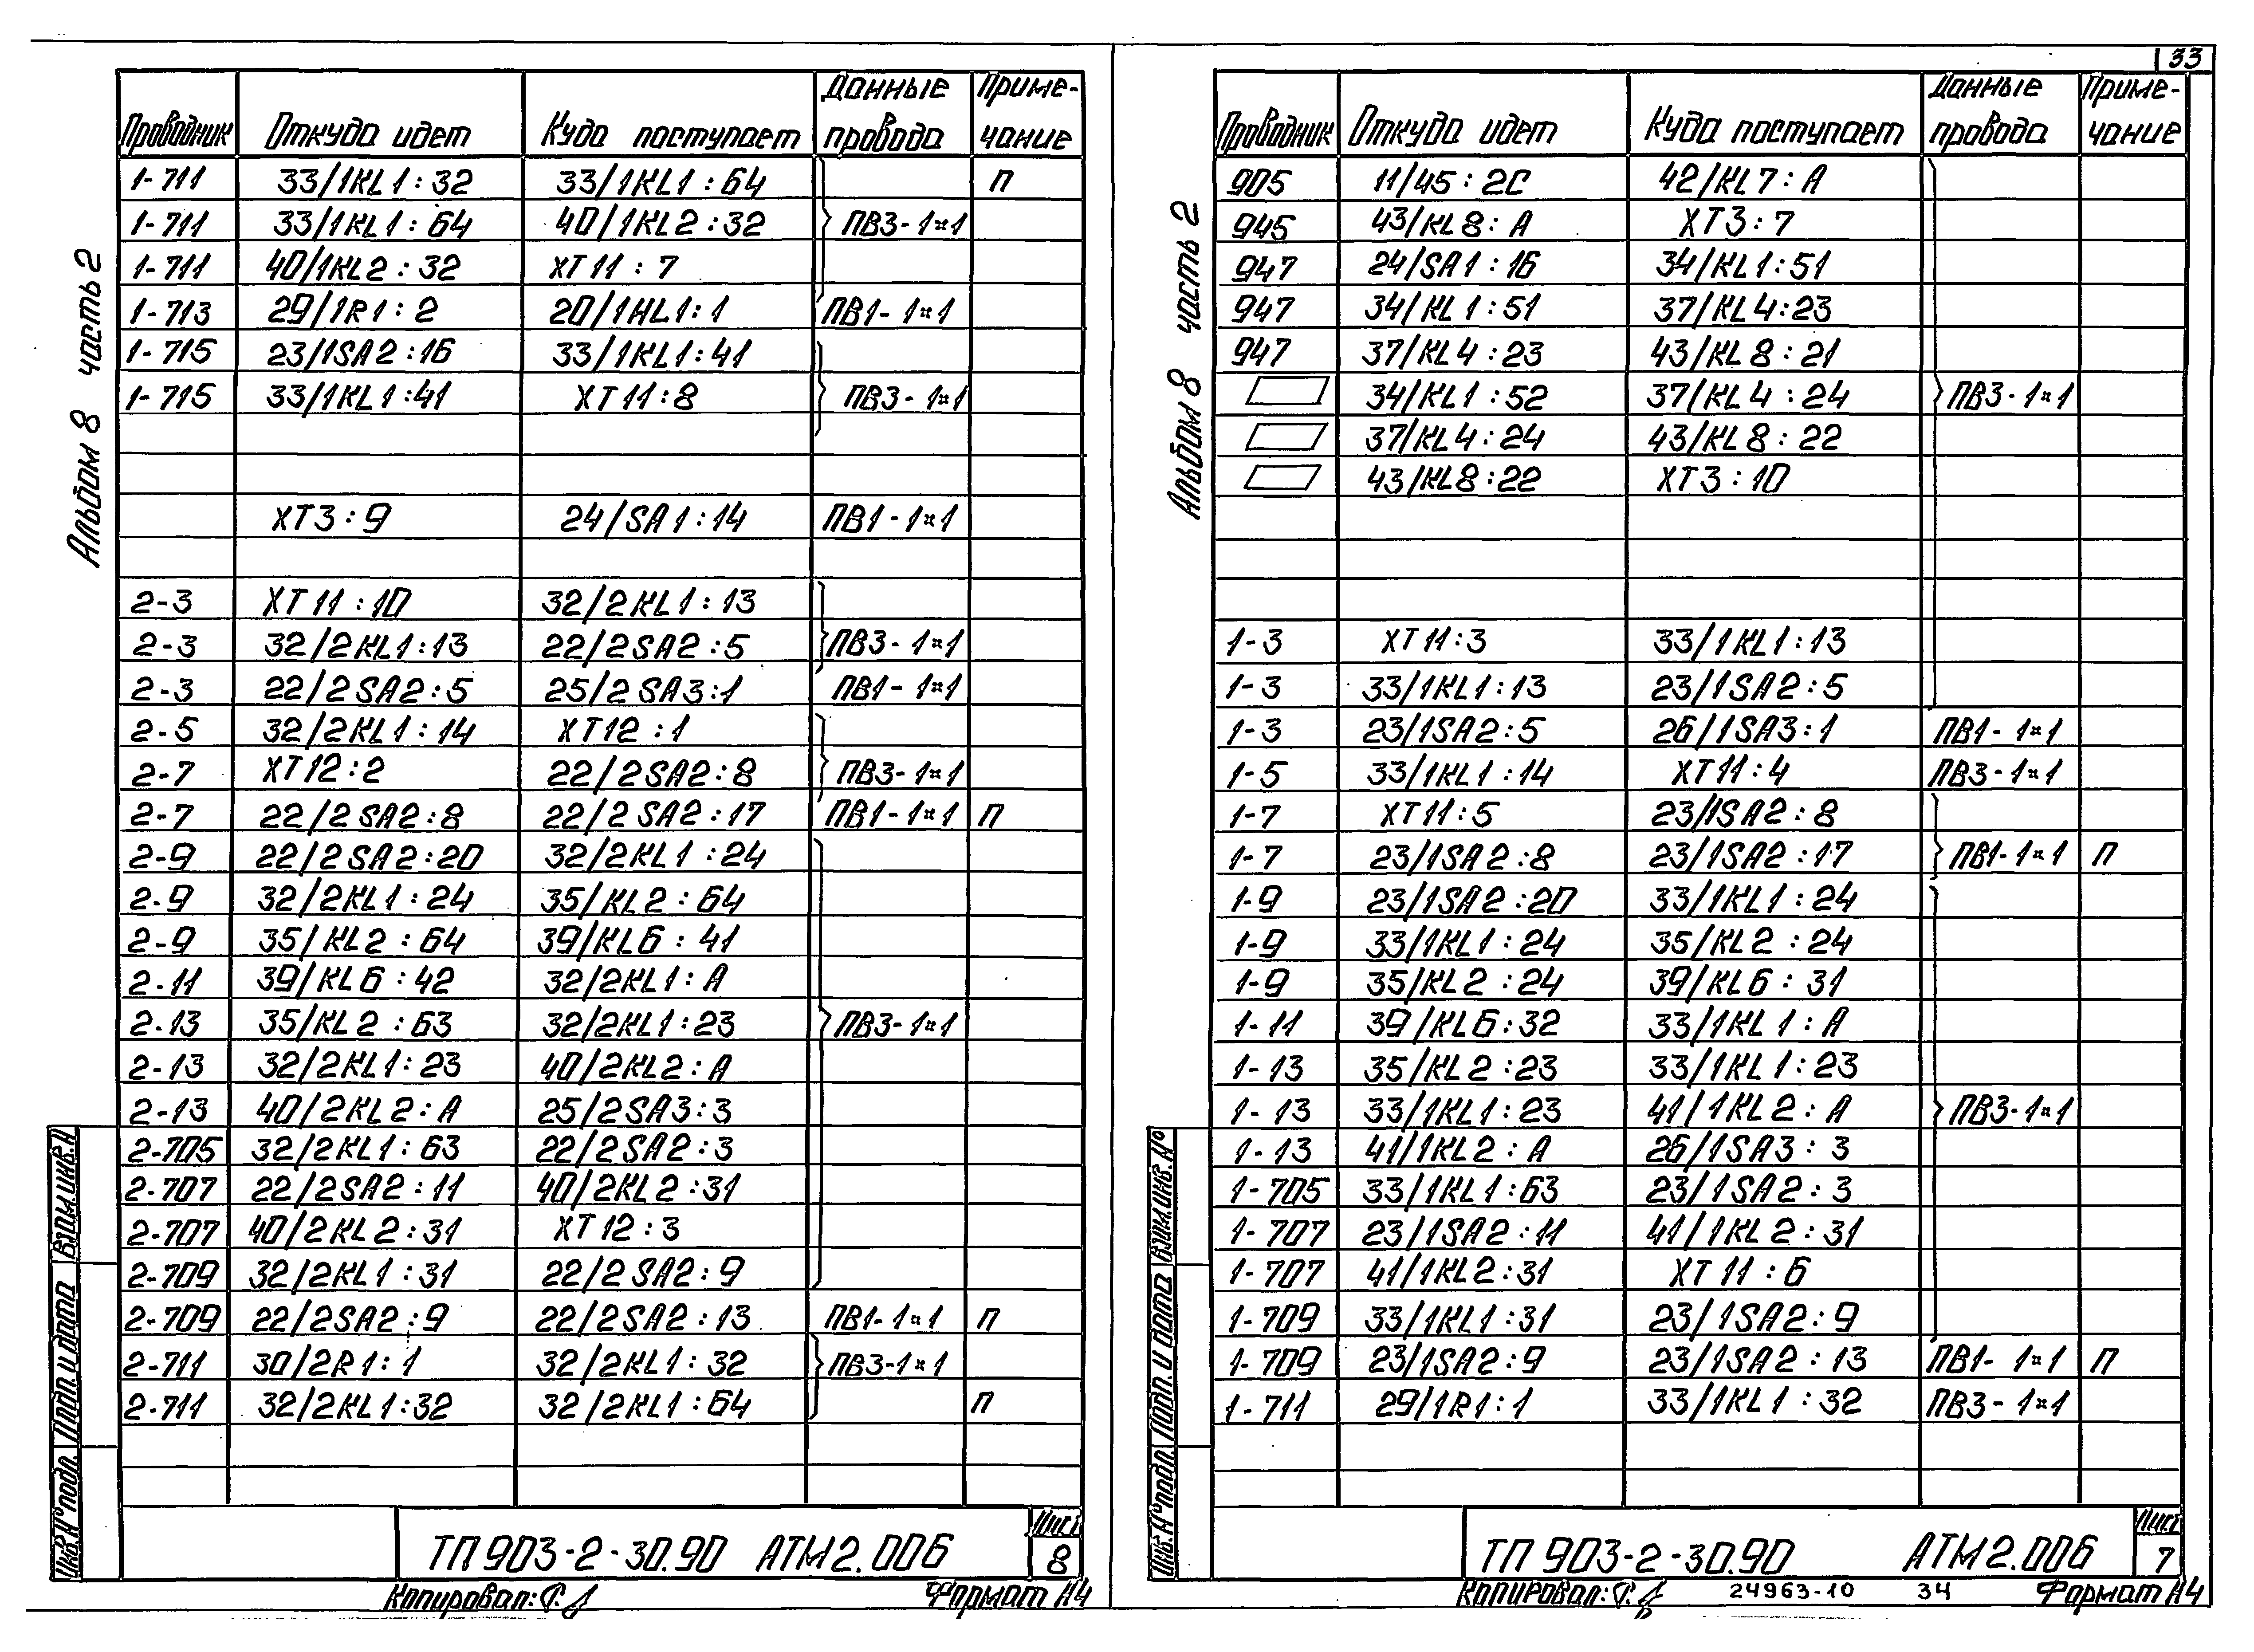 33
Альбом 8 часть 2
Проводник Откуда идет Куда поступает Данные провода Примечание
1-711 33/1KL1:32 33/1KL1:64 П
1-711 33/1KL1:64 40/1KL2:32 ПВ3-1×1
1-711 40/1KL2:32 XT11:7
1-713 29/1R1:2 20/1HL1:1 ПВ1-1×1
1-715 23/1SA2:16 33/1KL1:41
1-715 33/1KL1:41 XT11:8 ПВ3-1×1
XT3:9 24/SA1:14 ПВ1-1×1
2-3 XT11:10 32/2KL1:13
2-3 32/2KL1:13 22/2SA2:5 ПВ3-1×1
2-3 22/2SA2:5 25/2SA3:1 ПВ1-1×1
2-5 32/2KL1:14 XT12:1
2-7 XT12:2 22/2SA2:8 ПВ3-1×1
2-7 22/2SA2:8 22/2SA2:17 ПВ1-1×1 П
2-9 22/2SA2:20 32/2KL1:24
2-9 32/2KL1:24 35/KL2:64
2-9 35/KL2:64 39/KL6:41
2-11 39/KL6:42 32/2KL1:A
2-13 35/KL2:63 32/2KL1:23 ПВ3-1×1
2-13 32/2KL1:23 40/2KL2:A
2-13 40/2KL2:A 25/2SA3:3
2-705 32/2KL1:63 22/2SA2:3
2-707 22/2SA2:11 40/2KL2:31
2-707 40/2KL2:31 XT12:3
2-709 32/2KL1:31 22/2SA2:9
2-709 22/2SA2:9 22/2SA2:13 ПВ1-1×1 П
2-711 30/2R1:1 32/2KL1:32 ПВ3-1×1
2-711 32/2KL1:32 32/2KL1:64 П
Инв.N°подл. Подп. и дата Взам.инв.N
ТП 903-2-30.90 АТМ2.006 Лист 8
Копировал: Формат А4
Альбом 8 часть 2
Проводник Откуда идет Куда поступает Данные провода Примечание
905 11/45:2C 42/KL7:A
945 43/KL8:A XT3:7
947 24/SA1:16 34/KL1:51
947 34/KL1:51 37/KL4:23
947 37/KL4:23 43/KL8:21
34/KL1:52 37/KL4:24 ПВ3-1×1
37/KL4:24 43/KL8:22
43/KL8:22 XT3:10
1-3 XT11:3 33/1KL1:13
1-3 33/1KL1:13 23/1SA2:5
1-3 23/1SA2:5 26/1SA3:1 ПВ1-1×1
1-5 33/1KL1:14 XT11:4 ПВ3-1×1
1-7 XT11:5 23/1SA2:8
1-7 23/1SA2:8 23/1SA2:17 ПВ1-1×1 П
1-9 23/1SA2:20 33/1KL1:24
1-9 33/1KL1:24 35/KL2:24
1-9 35/KL2:24 39/KL6:31
1-11 39/KL6:32 33/1KL1:A
1-13 35/KL2:23 33/1KL1:23
1-13 33/1KL1:23 41/1KL2:A ПВ3-1×1
1-13 41/1KL2:A 26/1SA3:3
1-705 33/1KL1:63 23/1SA2:3
1-707 23/1SA2:11 41/1KL2:31
1-707 41/1KL2:31 XT11:6
1-709 33/1KL1:31 23/1SA2:9
1-709 23/1SA2:9 23/1SA2:13 ПВ1-1×1 П
1-711 29/1R1:1 33/1KL1:32 ПВ3-1×1
Инв.N°подл. Подп. и дата Взам.инв.N°
ТП 903-2-30.90 АТМ2.006 Лист 7
Копировал: 24963-10 34 Формат А4